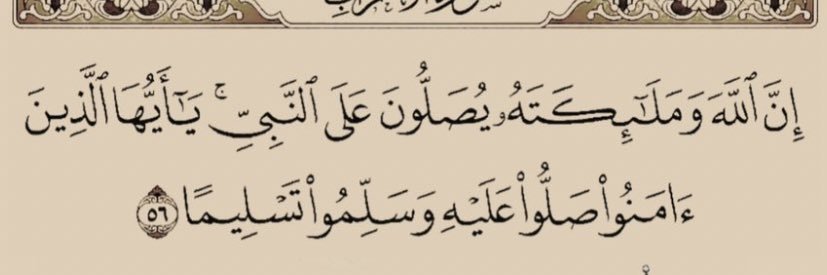 إِنَّ ٱللَّهَ وَمَلَٰٓئِكَتَهُۥ يُصَلُّونَ عَلَى ٱلنَّبِيِّۚ يَٰٓأَيُّهَا ٱلَّذِينَ
ءَامَنُوا۟ صَلُّوا۟ عَلَيْهِ وَسَلِّمُوا۟ تَسْلِيمًا ٥٦